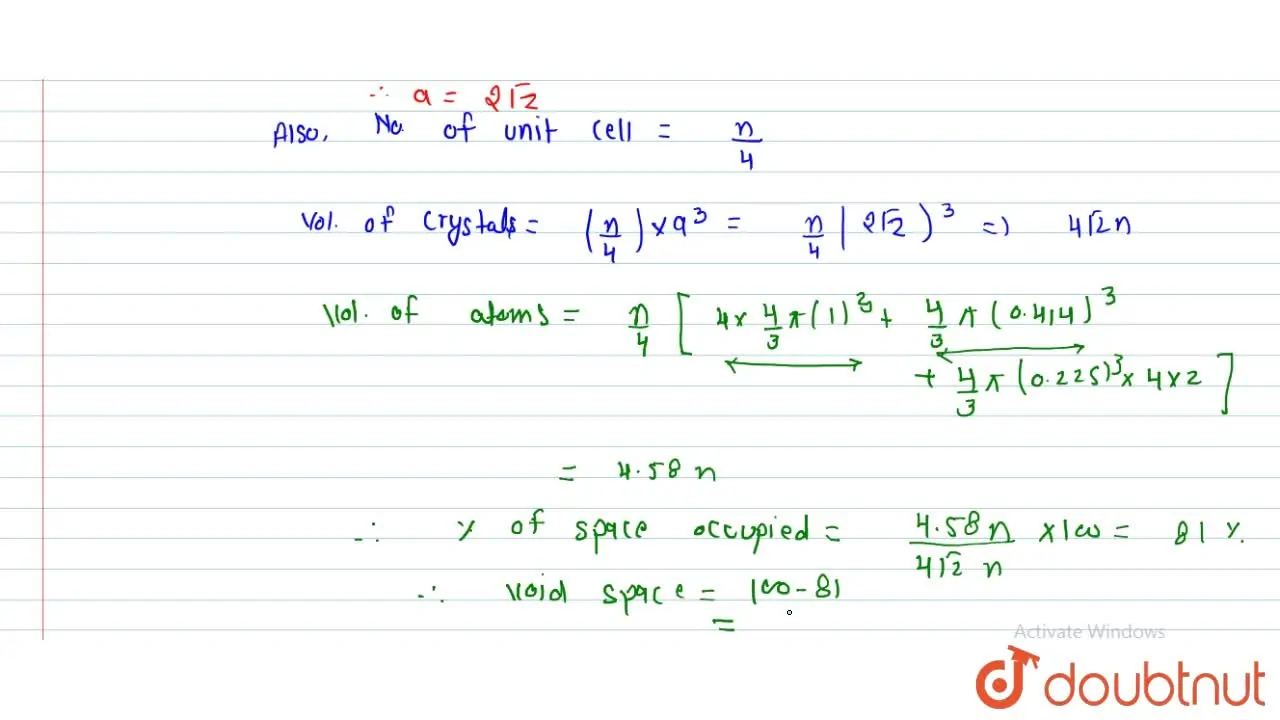 ∴ a = 2√2
Also, No. of unit cell = n/4
Vol. of crystals = (n/4) × a³ = n/4 (2√2)³ => 4√2n
Vol. of atoms = n/4 [ 4× 4/3 π(1)³ + 4/3 π (0.414)³
+ 4/3 π (0.225)³ × 4×2 ]
= 4.58 n
∴ % of space occupied = 4.58 n / 4√2 n ×100 = 81 %.
∴ void space = 100-81
=
Activate Windows
doubtnut